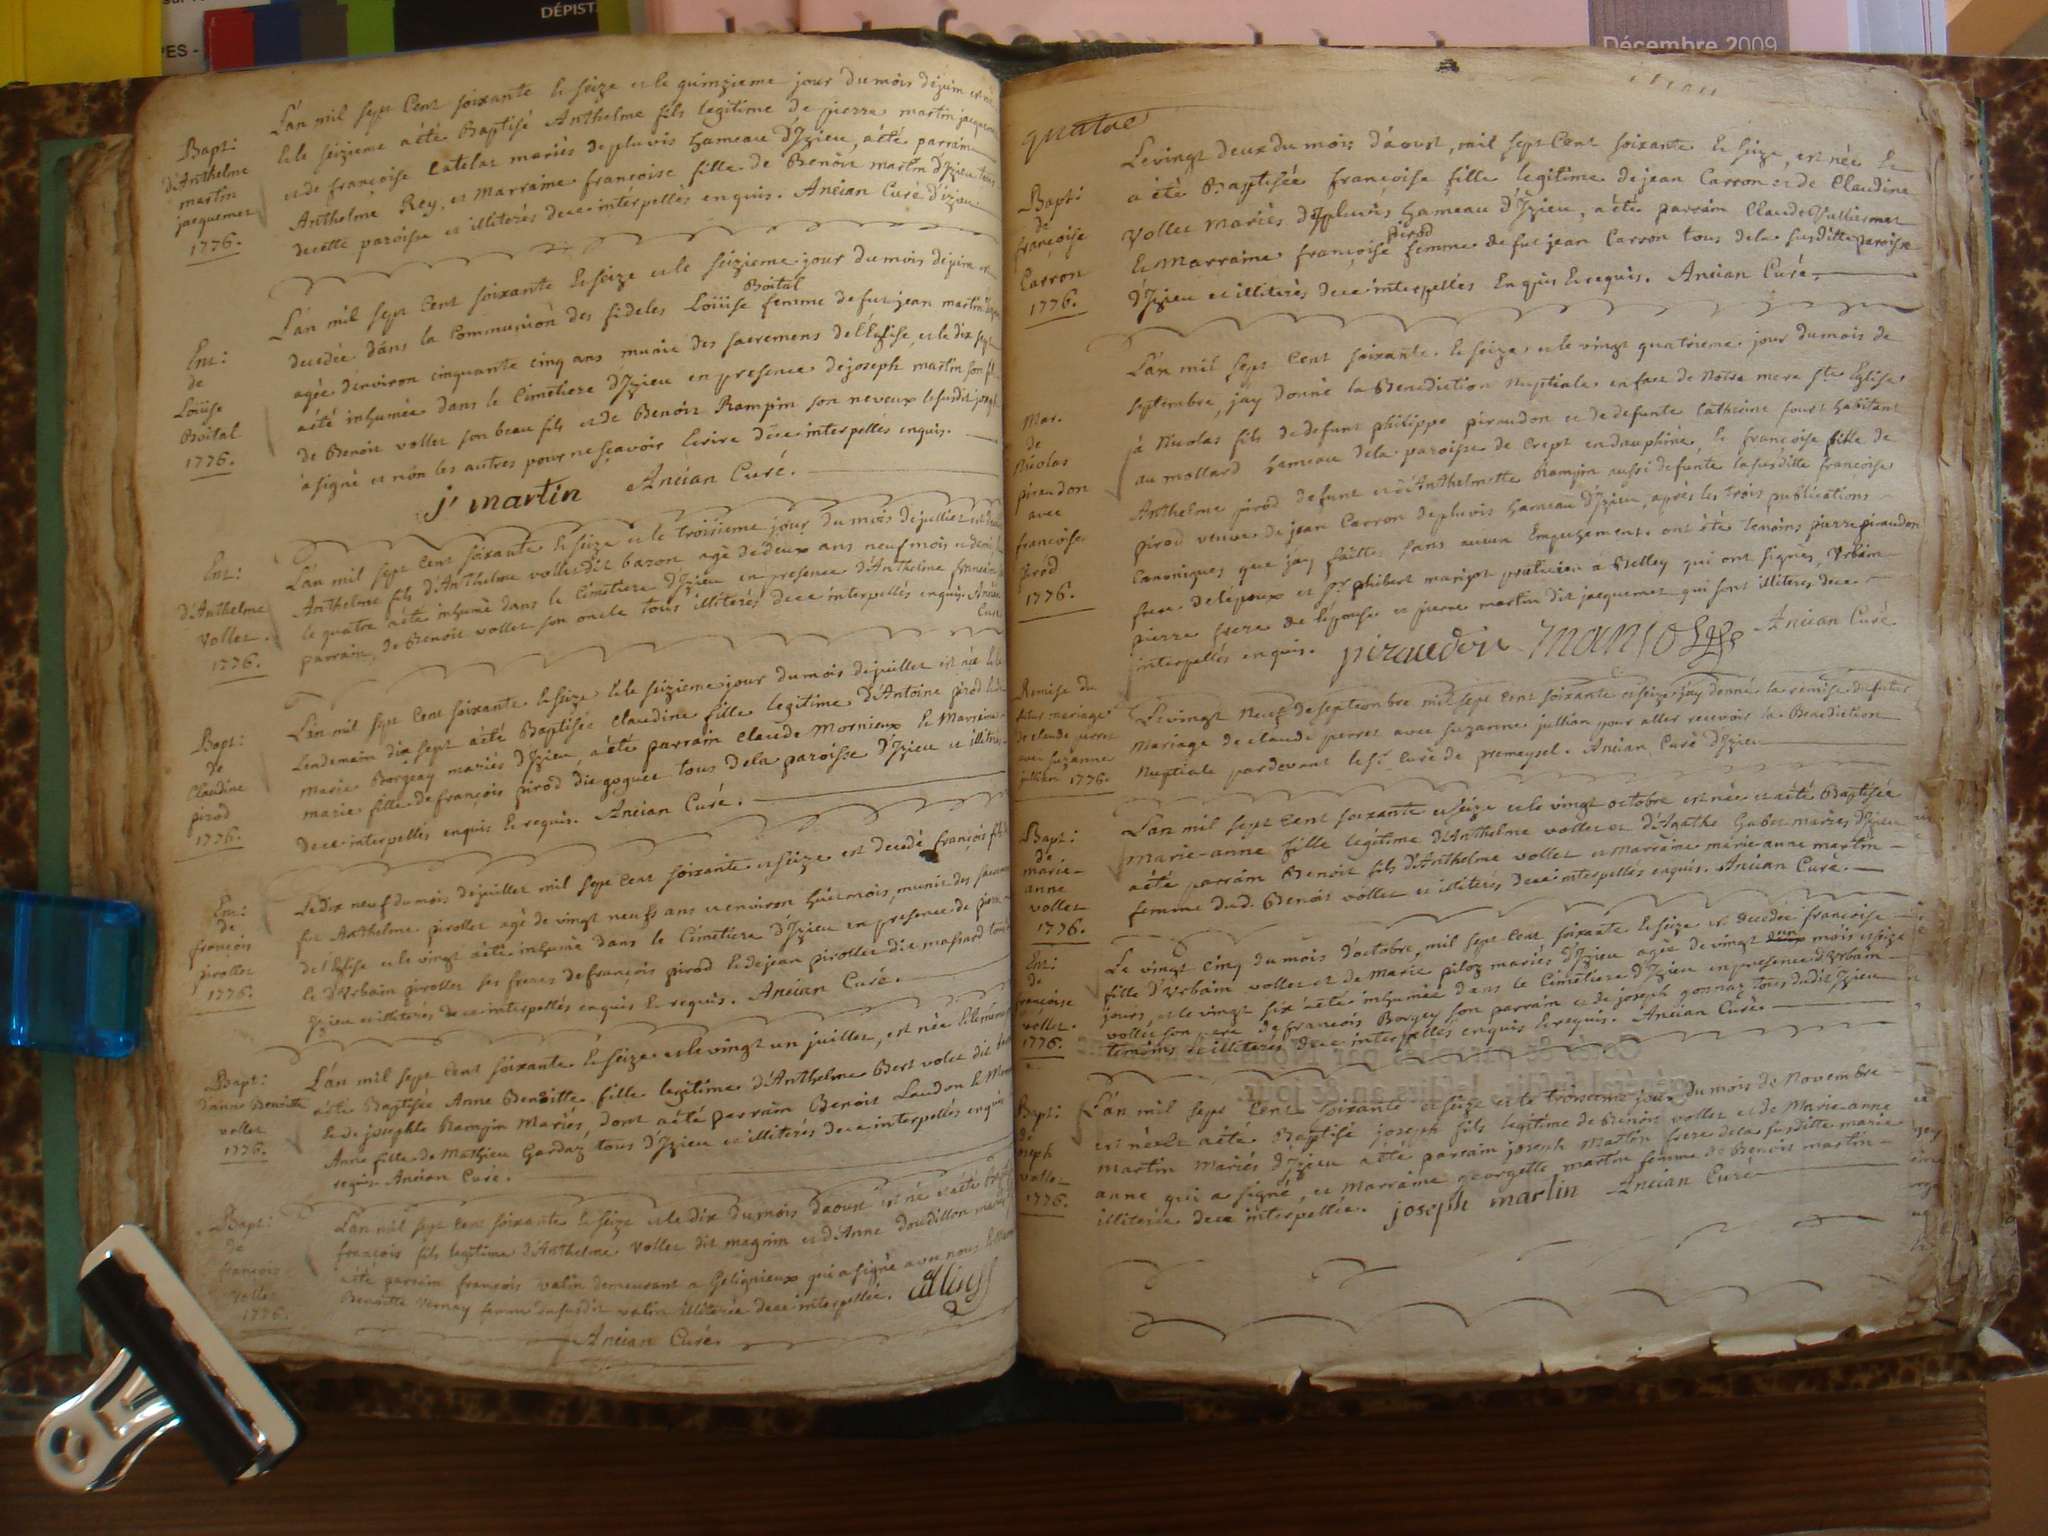 DÉPIST
PES -
Décembre 2009
Bapt:
d'Anthelme
martin
jacquemet
1776.
L'an mil sept Cent soixante & seize et le quinzieme jour du mois de juin est né
& le seizieme a été Baptisé Anthelme fils legitime de pierre martin jacquemet
et de françoise Catelat mariés de pluvis hameau d'Izieu, a été parrain
Anthelme Rey, et Marraine françoise fille de Benoit martin d'Izieu tous
de cette paroisse et illiterés de ce interpellés enquis. Ancian Curé d'izieu
Ent:
de
Loüise
Boital
1776.
L'an mil sept Cent soixante & seize et le seizieme jour du mois de juin est
decedée dans la Communion des fideles Loüise Boital femme de fut jean martin
agée d'environ cinquante cinq ans munie des sacremens de l'Eglise et le dix sept
a été inhumée dans le Cimetiere d'Izieu en presence de joseph martin son fils
de Benoit vollet son beau fils et de Benoit Rampin son neveux le susdit joseph
a signé et non les autres pour ne sçavoir Ecrire de ce interpellés enquis.
j. martin Ancian Curé.
Ent:
d'Anthelme
vollet.
1776.
L'an mil sept Cent soixante & seize et le troisieme jour du mois de juillet est decedé
Anthelme fils d'Anthelme vollet dit bazon agé de deux ans neuf mois et demi
le quatre a été inhumé dans le Cimetiere d'Izieu en presence d'Anthelme
parrain, de Benoit vollet son oncle tous illiterés de ce interpellés enquis. Ancian
Curé
Bapt:
de
Claudine
pirod
1776.
L'an mil sept Cent soixante & seize & le seizieme jour du mois de juillet est née & le
Lendemain dix sept a été Baptisée Claudine fille legitime d'Antoine pirod & de
Marie Borgeay mariés d'Izieu, a été parrain Claude Mornieux & Marraine
marie fille de françois pirod dit goguet tous de la paroisse d'Izieu et illiterés
de ce interpellés enquis & requis. Ancian Curé.
Ent:
de
françois
pirollet
1776.
Le dix neuf du mois de juillet mil sept Cent soixante et seize est decedé françois fils de
fut Anthelme pirollet agé de vingt neufs ans et environ huit mois, munis des sacremens
de l'Eglise et le vingt a été inhumé dans le Cimetiere d'Izieu en presence de pierre
& d'Urbain pirollet ses freres de françois pirod & de jean pirollet dit massard tous
Izieu et illiterés de ce interpellés enquis & requis. Ancian Curé.
Bapt:
d'anne Benoitte
vollet
1776.
L'an mil sept Cent soixante & seize et le vingt un juillet, est née & le même
a été Baptisée Anne Benoitte fille legitime d'Anthelme Bert volet dit
& de josephte Rampin Mariés, dont a été parrain Benoit Laudon & Marraine
Anne fille de Mathieu Gardaz tous d'Izieu et illiterés de ce interpellés enquis
requis Ancian Curé.
Bapt:
de
françois
vollet
1776.
L'an mil sept Cent soixante & seize et le dix du mois d'aoust est né et a été Baptisé
françois fils legitime d'Anthelme Vollet dit magnin et d'Anne doudillon mariés
a été parrain françois valin demeurant a Gelignieux qui a signé avec nous & Marraine
Benoitte Vernay femme du susdit valin illiterée de ce interpellée.
Ancian Curé.
quatre
Bapt:
de
françoise
Carron
1776.
Le vingt deux du mois d'aoust, mil sept Cent soixante & seize, est née &
a été Baptisée françoise fille legitime de jean Carron et de Claudine
Vollet Mariés de pluvis hameau d'Izieu, a été parrain Claude Vulliermet
& Marraine françoise pirod femme de fut jean Carron tous de la susditte paroisse
d'Izieu et illiterés de ce interpellés Enquis & requis. Ancian Curé.
Mar.
de
Nicolas
piraudon
avec
françoise
pirod
1776.
L'an mil sept Cent soixante & seize et le vingt quatrieme jour du mois de
septembre, jay donné la Benediction Nuptiale en face de Notre mere Ste Eglise
à Nicolas fils de defunt philippe piraudon et de defunte Catherine habitant
au mollard hameau de la paroisse de Crept en dauphiné & françoise fille de
Anthelme pirod defunt et d'Anthelmette Rampin aussi defunte la susditte françoise
pirod veuve de jean Carron de pluvis hameau d'Izieu, après les trois publications
Canoniques que jay faittes sans aucun Empechement. ont été temoins pierre piraudon
frere de l'epoux et Sr. philibert marijot praticien a Belley qui ont signés, Urbain
pierre frere de l'épouse et pierre martin dit jacquemet qui sont illiterés de ce
interpellés enquis. piraudon Ancian Curé
Remise du
futur mariage
de claude perret
avec suzanne
jullian 1776.
Le vingt Neuf de septembre mil sept Cent soixante et seize jay donné la remise du futur
Mariage de claude perret avec suzanne jullian pour aller recevoir la Benediction
Nuptiale pardevant le Sr. Curé de premeysel. Ancian Curé d'Izieu
Bapt:
de
marie-
anne
vollet
1776.
L'an mil sept Cent soixante et seize et le vingt octobre est née et a été Baptisée
Marie-anne fille legitime d'Anthelme vollet et d'Agathe Gabet mariés d'Izieu
a été parrain Benoit fils d'Anthelme vollet et Marraine marie-anne martin
femme dud. Benoit vollet et illiterés de ce interpellés enquis. Ancian Curé.
Ent:
de
françoise
vollet.
1776.
Le vingt cinq du mois d'octobre, mil sept Cent soixante & seize est decedée françoise
fille d'Urbain vollet et de Marie piloz mariés d'Izieu agée de vingt mois et seize
jours, et le vingt six a été inhumée dans le Cimetiere d'Izieu en presence d'Urbain
vollet son pere de françois Borgey son parrain et de joseph gonnaz tous dudit Izieu
temoins et illiterés de ce interpellés enquis & requis. Ancian Curé.
Bapt:
de
joseph
vollet
1776.
L'an mil sept Cent soixante et seize et le troisieme jour du mois de Novembre
est né et a été Baptisé joseph fils legitime de Benoit vollet et de Marie-anne
martin Mariés d'Izieu a été parrain joseph Martin frere de la susditte marie
anne qui a signé, et Marraine georgette martin femme de Benoit martin
illiterée de ce interpellée. joseph martin Ancian Curé